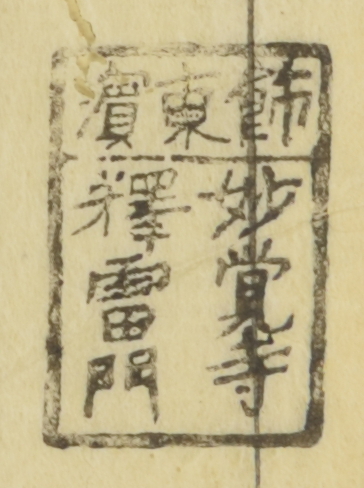 飾東濱
妙覚寺
釋雷門